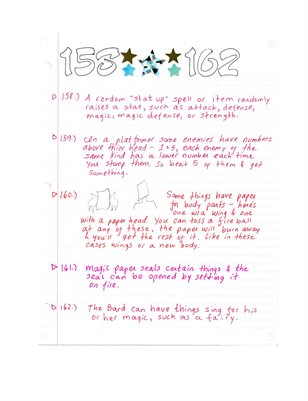 158 162
158.) A random "stat up" spell or item randomly
raises a stat, such as attack, defense,
magic, magic defense, or strength.
159.) On a platformer some enemies have numbers
above thier head - 1→5, each enemy of the
same kind has a lower number each time
you stomp them. So beat 5 of them & get
something.
160.) Some things have paper
for body parts - hands
one w/a wing & one
with a paper head. You can toss a fire ball
at any of these, the paper will burn away
& you'll get the rest of it. Like in these
cases wings or a new body.
161.) Magic paper seals certain things & the
seal can be opened by setting it
on fire.
162.) The Bard can have things sing for his
or her magic, such as a fairy.